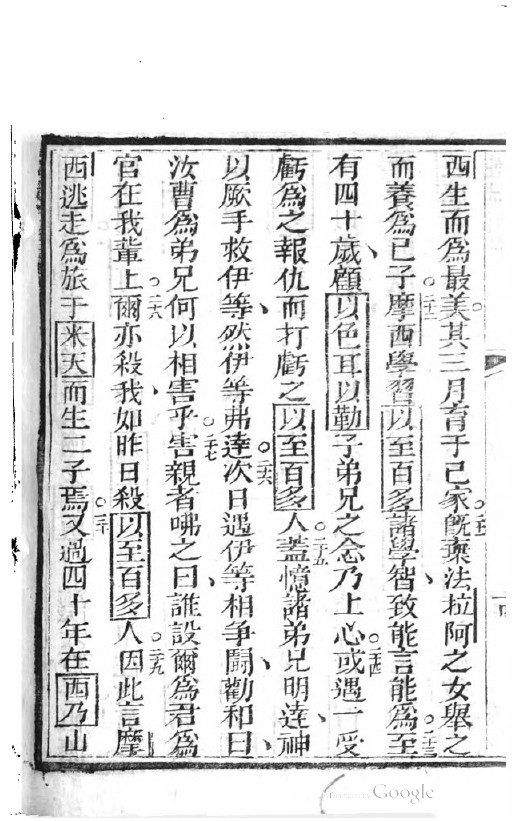 西生而爲最美其三月育于己家旣棄法拉阿之女舉之
而養爲己子摩西學習以至百多諸學智致能言能爲至
有四十歲顧以色耳以勒子弟兄之念乃上心或遇一受
虧爲之報仇而打虧之以至百多人蓋憶諸弟兄明逹神
以厥手救伊等然伊等弗逹次日遇伊等相爭鬪勸和曰
汝曹爲弟兄何以相害乎害親者咈之曰誰設爾爲君爲
官在我軰上爾亦殺我如昨日殺以至百多人因此言摩
西逃走爲旅于米天而生二子焉又過四十年在西乃山
Google